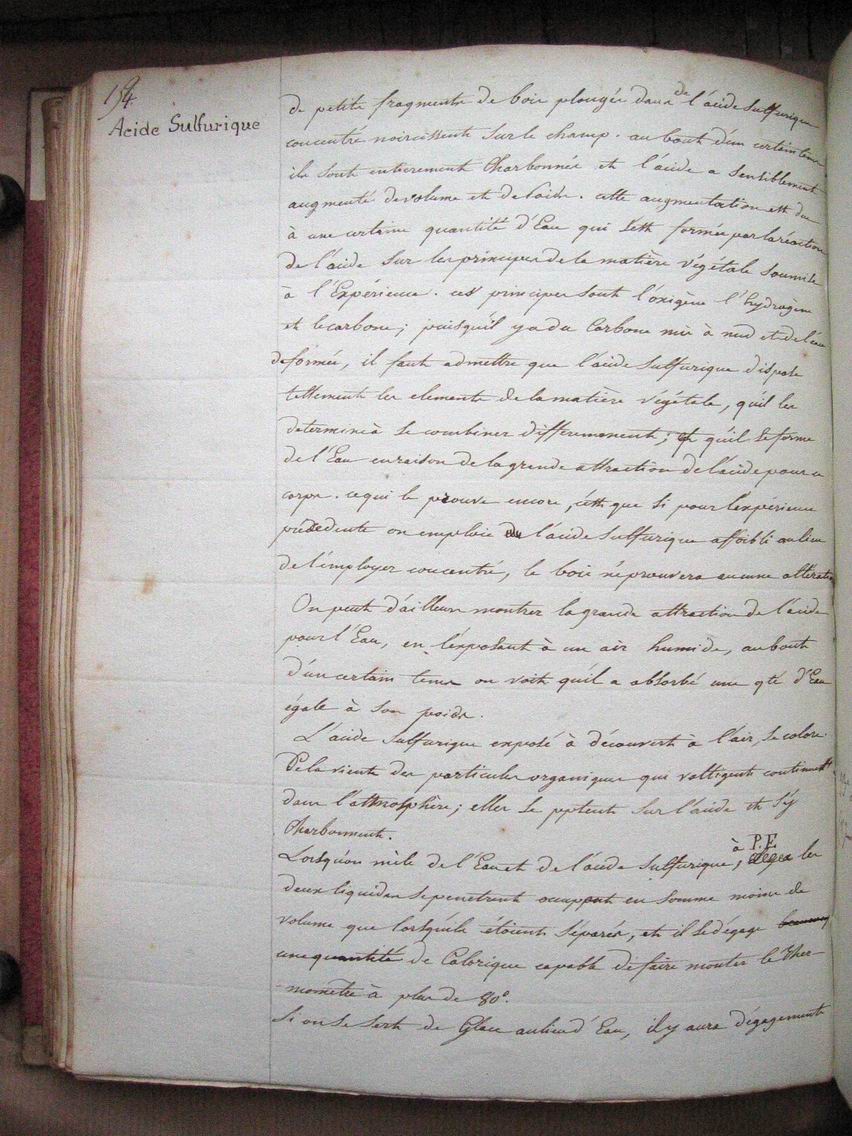 154
Acide Sulfurique
de petits fragments de bois plongés dans de l'acide sulfurique
concentré noircissent sur le champ. au bout d'un certain tems
ils sont entierement Charbonnés et l'acide a sensiblement
augmenté de volume et de poids. cette augmentation est due
à une certaine quantité d'Eau qui s'est formée par la réaction
de l'acide sur les principes de la matière végétale soumise
à l'Expérience. ces principes sont l'oxigène l'hydrogène
et le carbone; puisqu'il y a du Carbone mis à nud et de l'eau
de formée, il faut admettre que l'acide sulfurique dispose
tellement les elements de la matière végétale, qu'il les
determine à se combiner differemment; et qu'il se forme
de l'Eau en raison de la grande attraction de l'acide pour ce
corps. ce qui le prouve encore, c'est que si pour l'expérience
précédente on emploie de l'acide sulfurique affoibli au lieu
de l'employer concentré, le bois n'éprouvera aucune altération
On peut d'ailleurs montrer la grande attraction de l'acide
pour l'Eau, en l'exposant à un air humide, au bout
d'un certain tems on voit qu'il a absorbé une qté d'Eau
égale à son poids.
L'acide sulfurique exposé à découvert à l'air, se colore.
Cela vient des particules organiques qui voltigent continuellt
dans l'athmosphère; elles se pptent sur l'acide et s'y
Charbonnent.
Lorsqu'on mêle de l'Eau et de l'acide sulfurique, à P.E. les
deux liquides se penetrent occupent en somme moins de
volume que lorsqu'ils étoient séparés, et il se dégage
une quantité de Calorique capable de faire monter le Ther-
mometre à plus de 80°.
Si on se sert de Glace au lieu d'Eau, il y aura dégagement